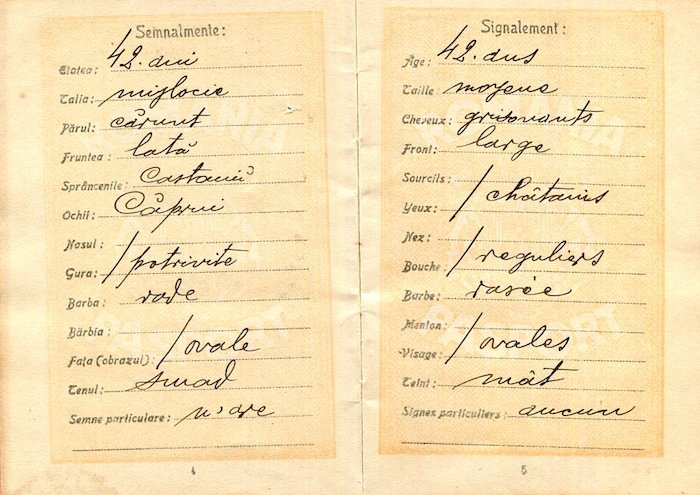 Semnalmente:
Etatea: 42. ani
Talia: mijlocie
Părul: cărunt
Fruntea: lată
Sprâncenile: Castanii
Ochii: Căprui
Nasul:
Gura: / potrivite
Barba: rade
Bărbia:
Fața (obrazul): / ovale
Tenul: smad
Semne particulare: n'are
4
Signalement:
Âge: 42. ans
Taille: moyene
Cheveux: grisonants
Front: large
Sourcils:
Yeux: / châtains
Nez:
Bouche: / reguliers
Barbe: rasée
Menton:
Visage: / ovales
Teint: mât
Signes particuliers: aucun
5